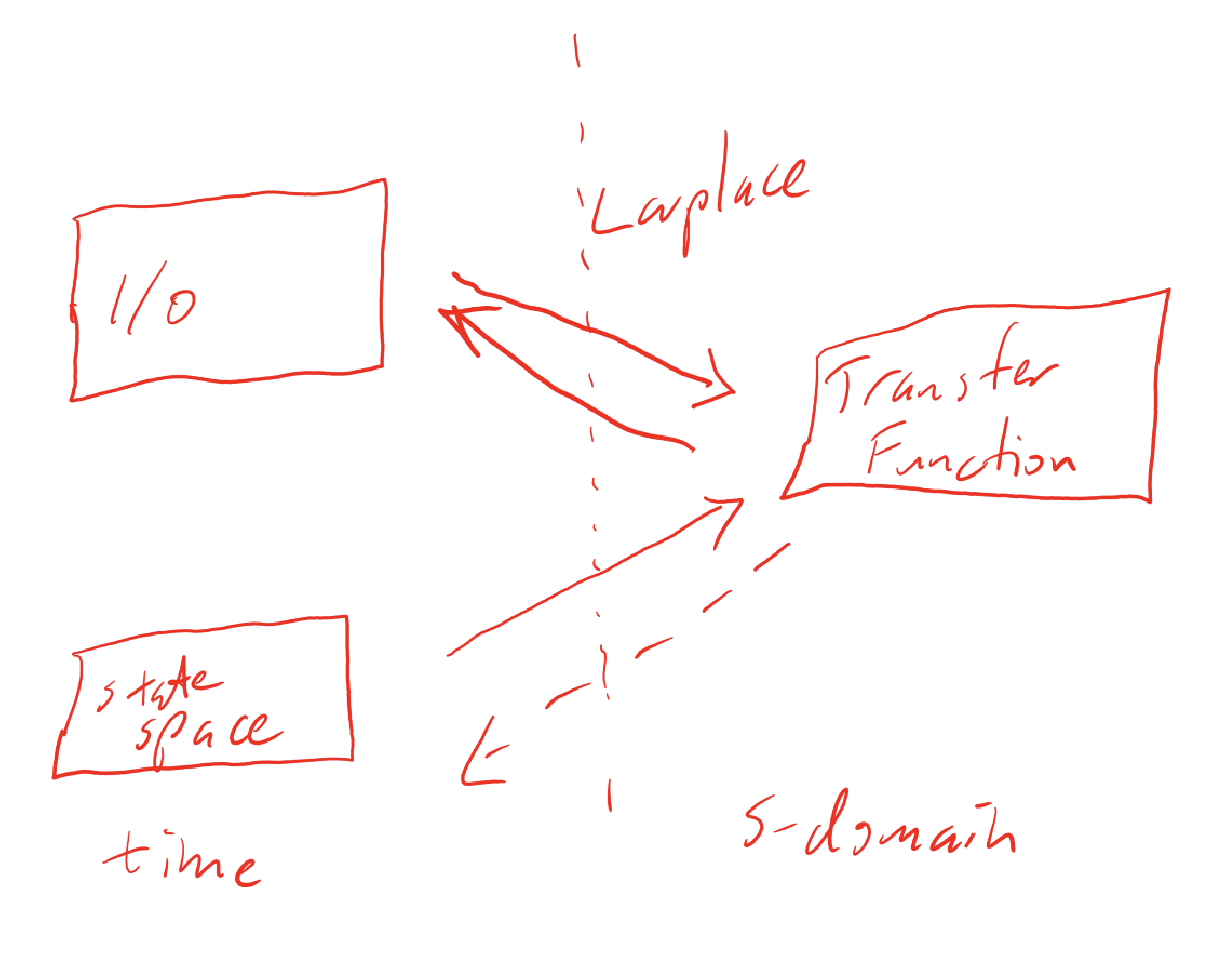 Laplace
I/O
Transfer
Function
state
space
time
s-domain